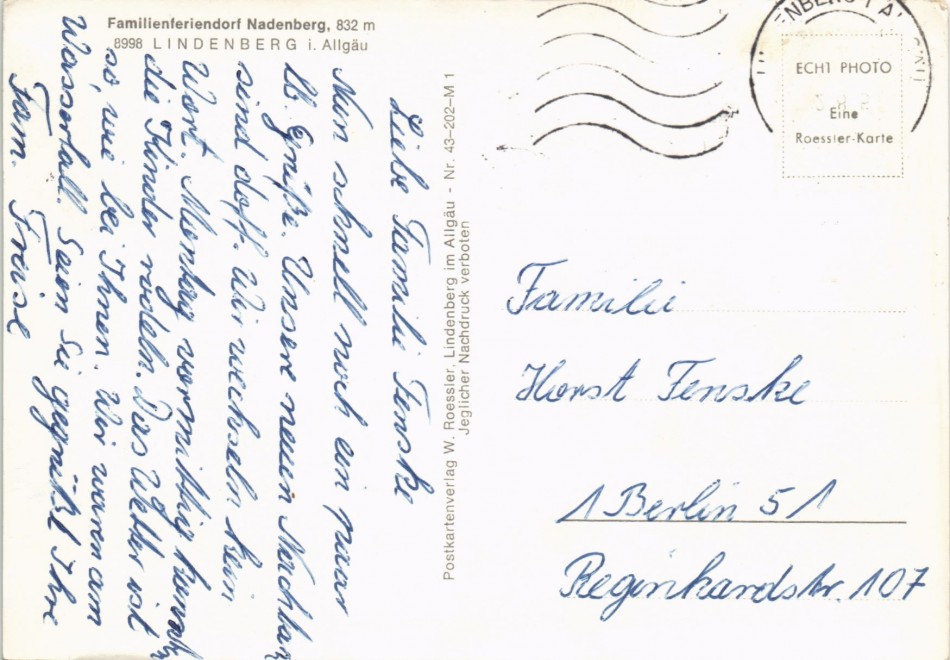 Familienferiendorf Nadenberg, 832 m
8998 LINDENBERG i. Allgäu
Liebe Familie Fenske
Nun schnell noch ein paar
lb. Grüße. Unsere neuen Nachbarn
sind doff. Wir wechseln kein
Wort. Montag vormittag
die Kinder rodeln. Das Wetter ist
so, wie bei Ihnen. Wir waren am
Wasserfall. Seien Sie gegrüßt Ihre
Fam. Freise
Postkartenverlag W. Roessler, Lindenberg im Allgäu - Nr. 43-202-M 1
Jeglicher Nachdruck verboten
ECHT PHOTO
Eine
Roessler-Karte
Familie
Horst Fenske
1 Berlin 51
Reginhardstr. 107